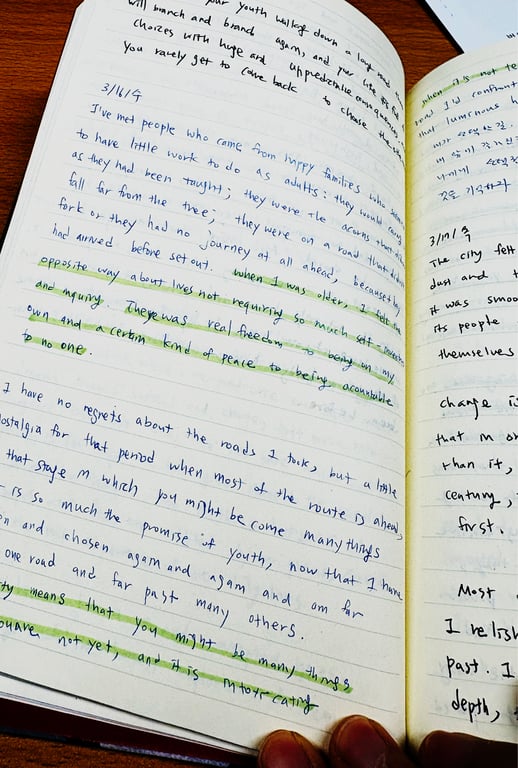 your youth walking down a long road
will branch and branch again, and your life is full
choices with huge and unpredictable consequences
you rarely get to come back to choose the
3/16/수
I've met people who came from happy families who
to have little work to do as adults: they would carry
as they had been taught; they were the acorns that
fall far from the tree; they were on a road that
fork or they had no journey at all ahead, because they
had arrived before set out. When I was older, I felt the
opposite way about lives not requiring so much self-
and inquiry. There was real freedom to being on my
own and a certain kind of peace to being acountable
to no one.
I have no regrets about the roads I took, but a little
nostalgia for that period when most of the route is ahead,
that stage in which you might be come many things
is so much the promise of youth, now that I have
and chosen again and again and am far
one road and far past many others.
means that you might be many things
not yet, and it is intoxicating
when it is not
road I'd confront
that luminous
3/17/목
The city felt
dust and
it was
its people
themselves
change is
that in
than it,
century,
first.
Most
I relish
past. I
depth,